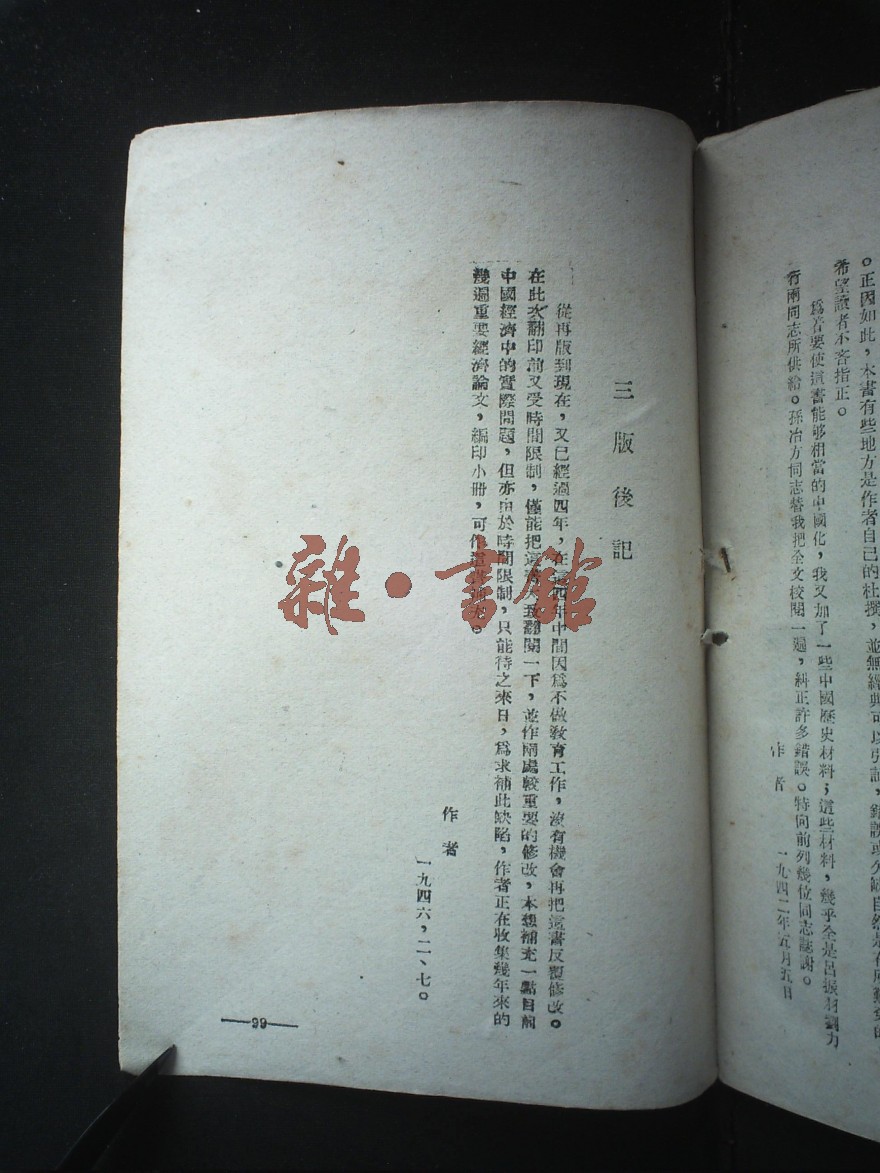 。正因如此，本書有些地方是作者自己的杜撰，並無經典可以引証，錯誤或欠缺自然是在所難免的
希望讀者不吝指正。
爲着要使這書能够相當的中國化，我又加了一些中國歷史材料；這些材料，幾乎全是呂振羽劉力
行兩同志所供給。孫冶方同志替我把全文校閱一遍，糾正許多錯誤。特向前列幾位同志誌謝。
作者 一九四二年五月五日
三版後記
從再版到現在，又已經過四年，在這四年中間因爲不做教育工作，沒有機會再把這書反覆修改。
在此次翻印前又受時間限制，僅能把這書 翻閱一下，並作兩處較重要的修改，本想補充一點目前
中國經濟中的實際問題，但亦由於時間限制，只能待之來日，爲求補此缺陷，作者正在收集幾年來的
幾過重要經濟論文，編印小冊，可作這書補充。
作者
一九四六，二、七。
—99—
雜·書館